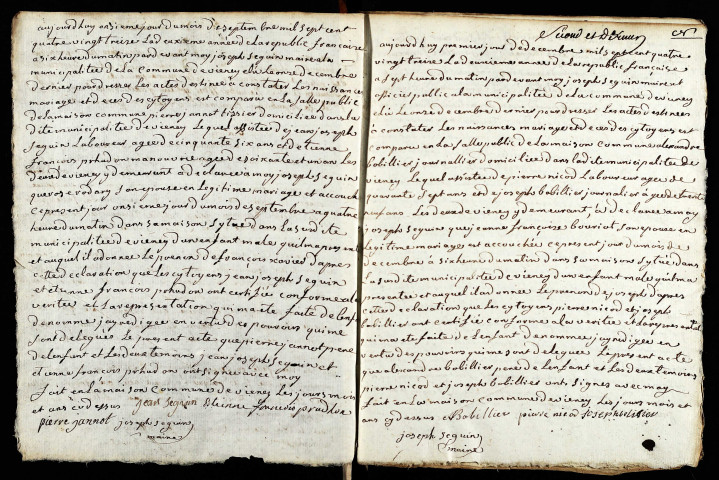 aujourdhuy onsiemejour dumois de septembre mil sept cent
quatre vingt treize Ladeuxieme année dela republic francaise
a six heure dumatin pardevant moy joseph Seguin maire a la
municipalitée de la Commune de vieney elu le onse decembre
dernier pour dresser Les actes destinée a constater Les naissances
mariage et deces des cytoyens est comparu en La salle public
de la maison commune pierre jannot tissier domiciliée dans la
dite municipalitée de vieney Lequel assistée de jean joseph
Seguin Laboureur agée de cinquante six ans et detienne
francois prhudon manouvre agée de soixante et un ans Les
deux de vieney y demeurant a déclarée a moy joseph Seguin
que rose rodary son epouse en Legitime mariage est accouchée
ce present jour onsieme jour dumois de septembre a quatre
heure dumatin dans sa maison Sytuée dans La susdite
municipalitée de vieney dun enfant male quil ma presenté
et auquel il a donnée Le prenom de francois xavier dapres
cette declaration que Les cytoyens jean joseph Seguin
et etienne francois prhudon ont certifiée conforme a la
veritée et La representation qui ma été faite de Lenfant
denommé jay redigée en vertu des pouvoirs qui me
sont deleguée Le present acte que pierre jannot pere
de Lenfant et Les deux temoins jean joseph Seguin et
etienne francois prhudon ont signée avec moy
fait en La maison Commune de vieney Les jours mois
et ans cy dessus jean Seguin Etienne francois prudhon
pierre jannot joseph Seguin
maire
Second et Dernier
aujourdhuy premier jour de decembre mil sept cent quatre
vingt treize La deuxieme année dela republic française
a sept heure dumatin pardevant moy joseph Seguin maire et
officier public a la municipalitée de la commune de vieney
elu Le onse decembre dernier pour dresser Les actes destinées
a constater Les naissances mariage et deces des cytoyens est
comparu en La salle public de la maison commune alexandre
bobillier journallier domiciliée dans laditte municipalitée de
vieney Lequel assistée de pierre nicod Laboureur agée de
quarante sept ans et de joseph bobillier journalier agée de trente
neuf ans Les deux de vieney y demeurant, à declarée a moy
joseph Seguin que jeanne françoise bouriot son epouse en
legitime mariage est accouchée ce present jour du mois de
decembre à six heure dumatin dans sa maison Sytuée dans
La susdite municipalitée de vieney dun enfant male quil ma
presentée et auquel il a donnée Le prenom de joseph dapres
cette declaration que Les cytoyens pierre nicod et joseph
bobillier ont certifiée conforme a la veritée et la representation
qui ma ete faite de Lenfant denommée jay redigée en
vertu des pouvoirs qui me sont deleguée Le present acte
que alexandre bobillier pere de Lenfant et Les deux temoins
pierre nicod et joseph bobillier ont signés avec moy
fait en La maison Commune de vieney Les jours mois et
ans cy dessus a Bobillier piaire nicod Joseph bobillier
joseph Seguin
maire